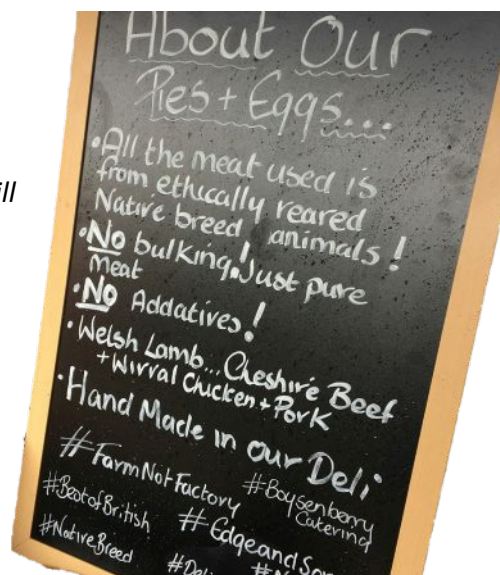 ill
About Our
Pies + Eggs...
•All the meat used is
from ethically reared
Native breed animals!
•NO bulking! Just pure
meat
•NO Addatives!
•Welsh Lamb... Cheshire Beef
+ Wirral Chicken + Pork
•Hand Made in our Deli
#FarmNotFactory
#Boysenberry
Catering
#BestofBritish
#EdgeandSon
#NativeBreed